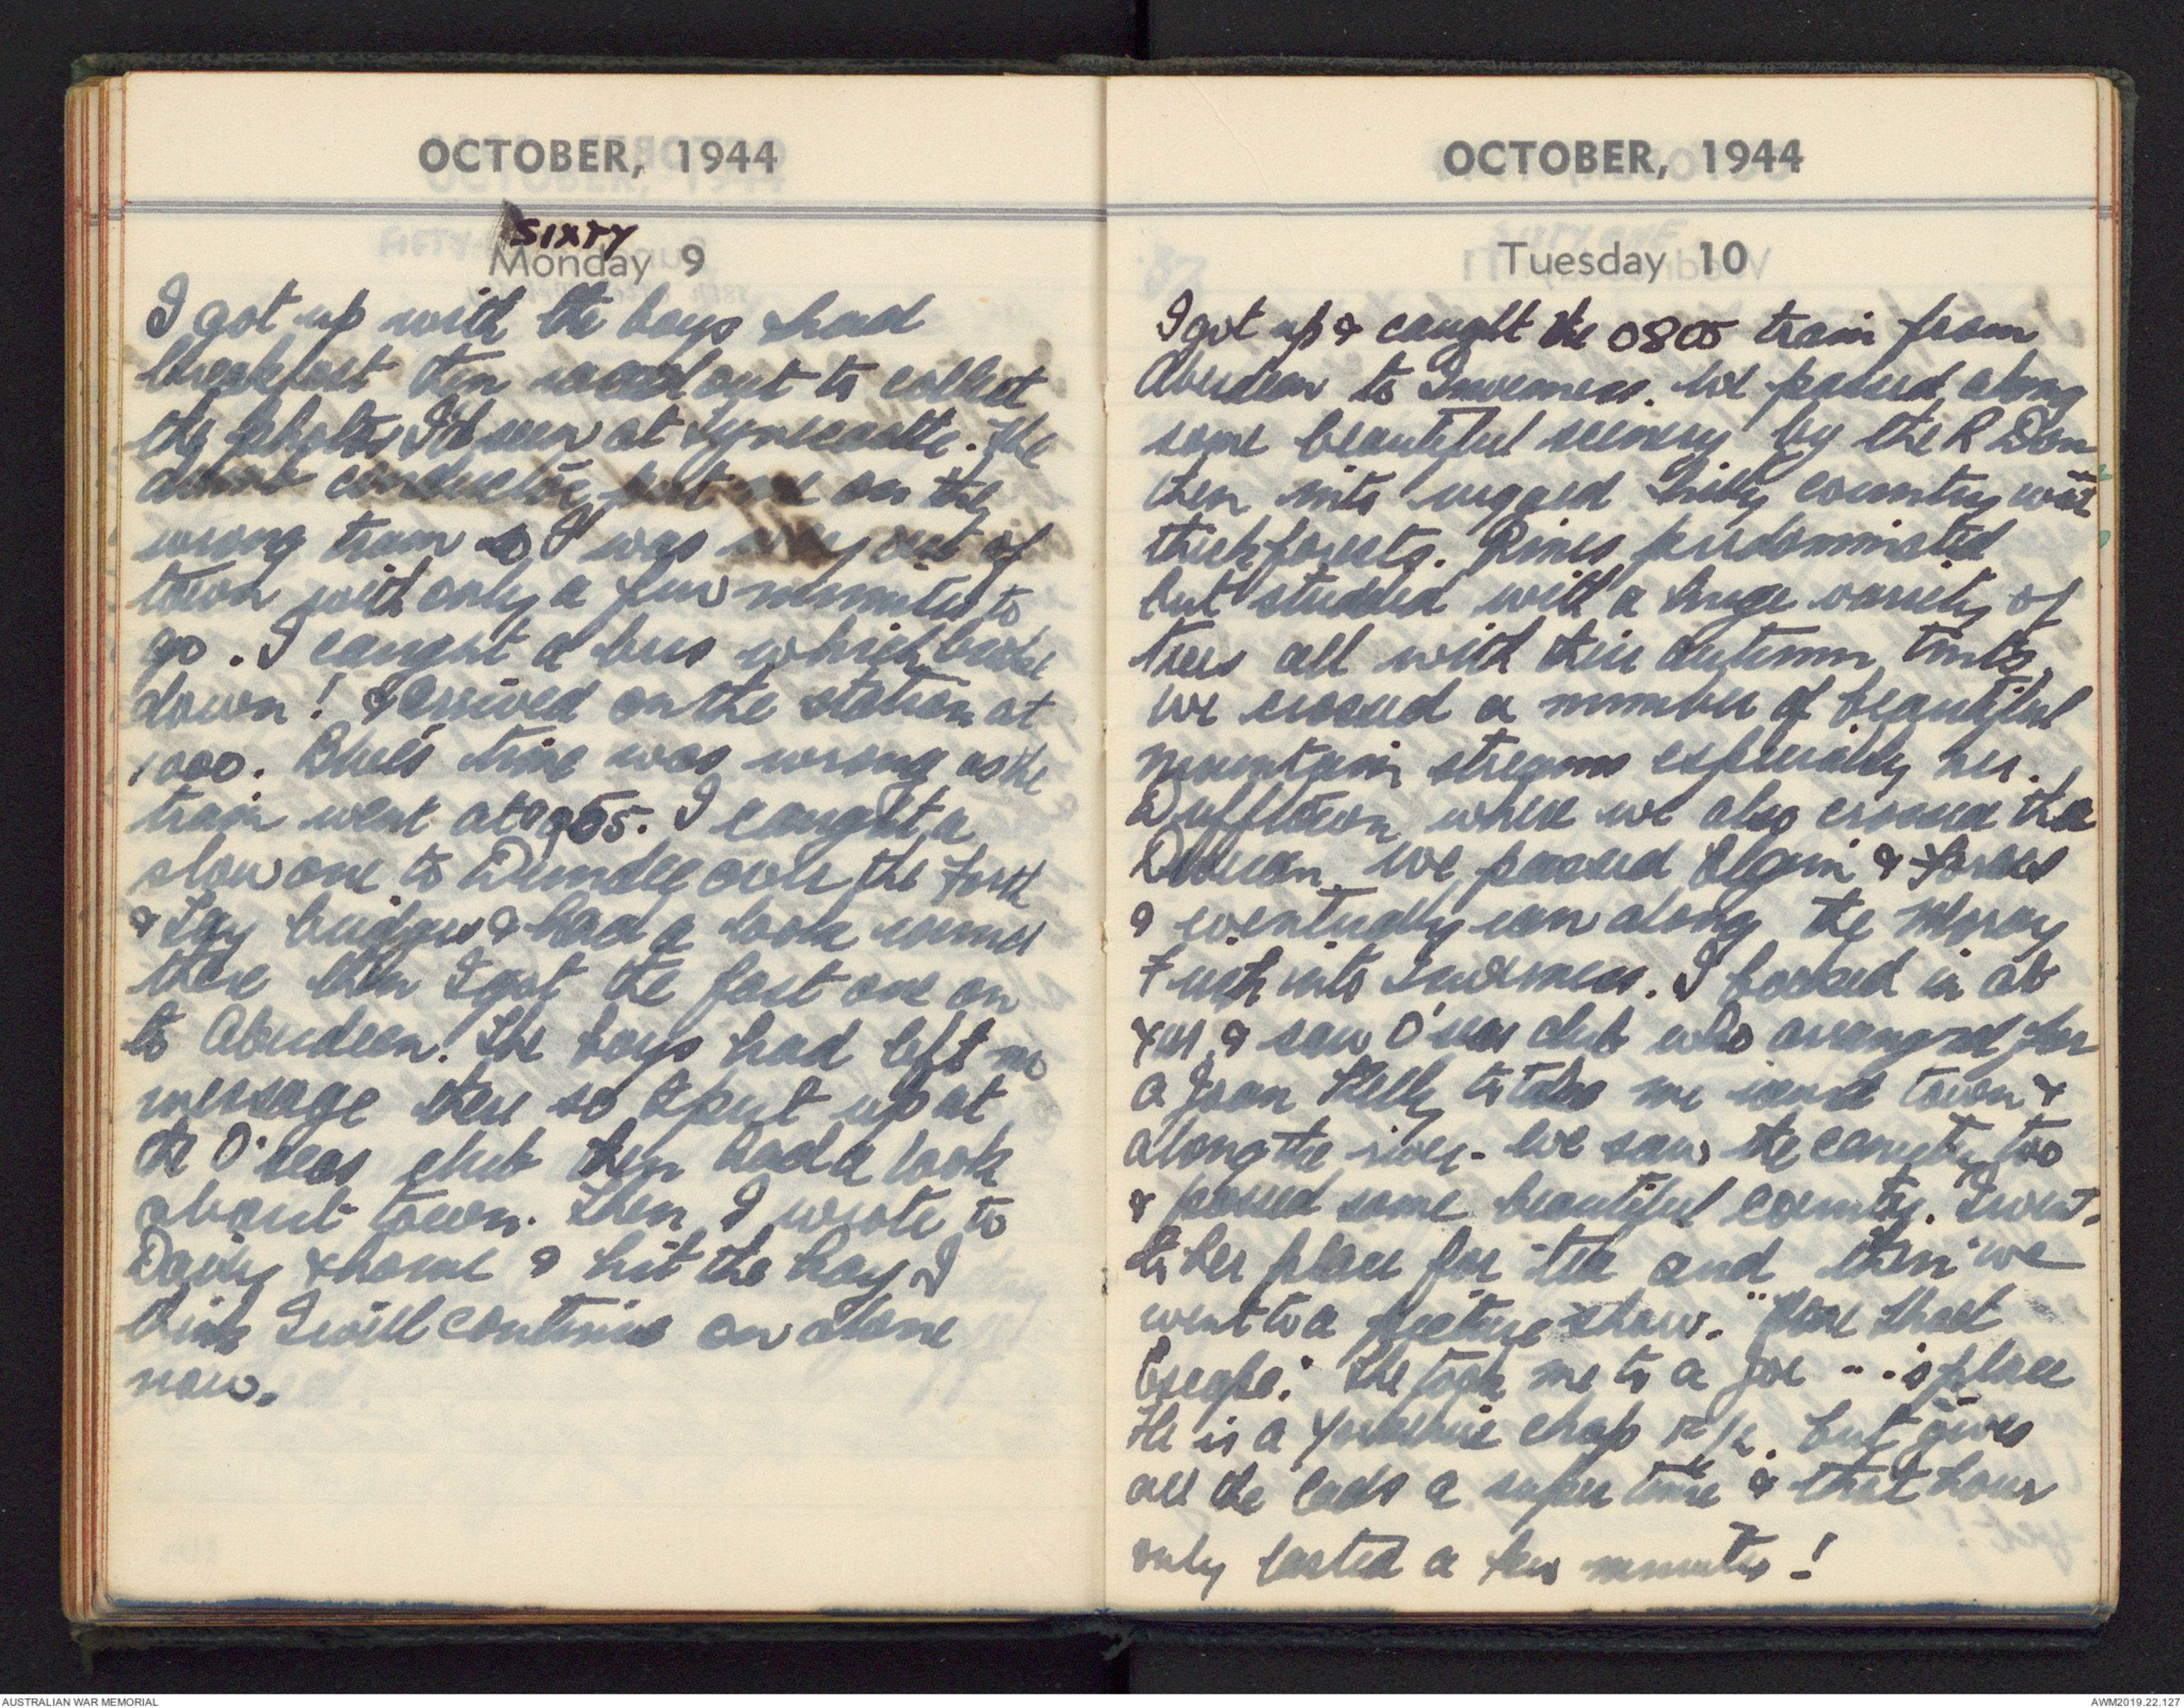 OCTOBER, 1944
SIXTY
Monday 9
I got up with the boys & had
breakfast then raced out to collect
the photos I'd seen at Tynecastle. The
dumb conductor put me on the
wrong tram so I was way out of
town with only a few minutes to
go. I caught a bus which broke
down! & arrived on the station at
1000. Blue's time was wrong as the
train went at 0955. I caught a
slow one to Dundee over the Forth
& Tay bridges & had a look round
there then I got the fast one on
to Aberdeen. The boys had left no
message there so I put up at
the O'seas club then had a look
about town. Then I wrote to
Daisy & home & hit the hay. I
think I will continue on alone
now.
OCTOBER, 1944
Tuesday 10
I got up & caught the 0805 train from
Aberdeen to Inverness. We passed along
some beautiful scenery by the R Don
then into rugged hilly country with
thick forests. Pines predominated
but studded with a huge variety of
trees all with their autumn tints.
We crossed a number of beautiful
mountain streams especially nr.
Dufftown where we also crossed the
We passed Elgin & Forres
& eventually ran along the Moray
Firth into Inverness. I booked in at
& saw O'seas club who arranged for
a Joan Kelly to take me round town &
along the river. We saw the too
& passed some beautiful country. I went
to her place for tea and then we
went to a picture show. "
Escape." She took me to a Joe - - 's place
He is a Yorkshire chap but gives
all the lads a super time & that hour
only lasted a few minutes!
AUSTRALIAN WAR MEMORIAL
AWM2019.22.127